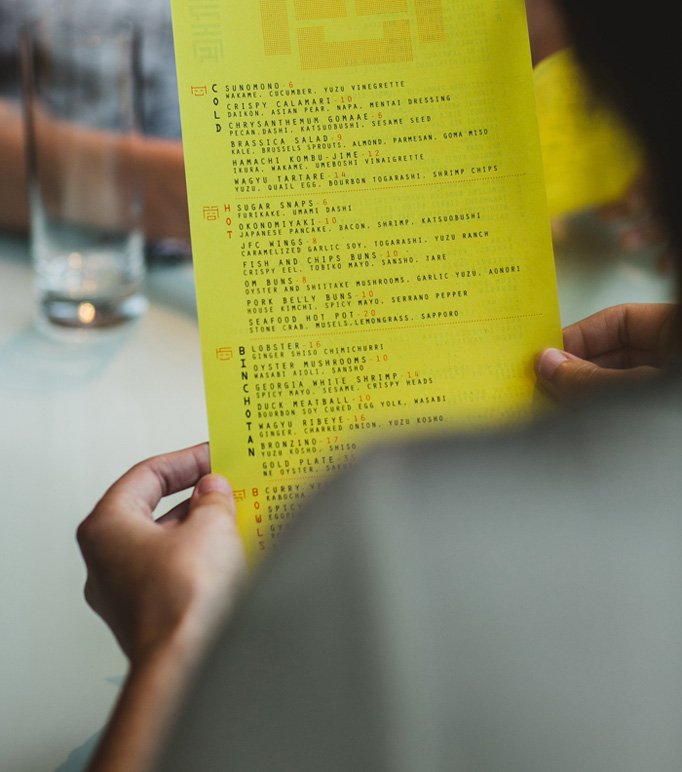 COLD
SUNOMOND-6
WAKAME, CUCUMBER, YUZU VINEGRETTE
CRISPY CALAMARI-10
DAIKON, ASIAN PEAR, NAPA, MENTAI DRESSING
CHRYSANTHEMUM GOMAAE-6
PECAN,DASHI, KATSUOBUSHI, SESAME SEED
BRASSICA SALAD-9
KALE, BRUSSELS SPROUTS, ALMOND, PARMESAN, GOMA MISO
HAMACHI KOMBU-JIME-12
IKURA, WAKAME, UMEBOSHI VINAIGRETTE
WAGYU TARTARE-14
YUZU, QUAIL EGG, BOURBON TOGARASHI, SHRIMP CHIPS
HOT
SUGAR SNAPS-6
FURIKAKE, UMAMI DASHI
OKONOMIYAKI-10
JAPANESE PANCAKE, BACON, SHRIMP, KATSUOBUSHI
JFC WINGS-8
CARAMELIZED GARLIC SOY, TOGARASHI, YUZU RANCH
FISH AND CHIPS BUNS-10
CRISPY EEL, TOBIKO MAYO, SANSHO, TARE
OM BUNS-8
OYSTER AND SHIITAKE MUSHROOMS, GARLIC YUZU, AONORI
PORK BELLY BUNS-10
HOUSE KIMCHI, SPICY MAYO, SERRANO PEPPER
SEAFOOD HOT POT-20
STONE CRAB, MUSELS,LEMONGRASS, SAPPORO
BINCHOTAN
LOBSTER-16
GINGER SHISO CHIMICHURRI
OYSTER MUSHROOMS-10
WASABI AIOLI, SANSHO
GEORGIA WHITE SHRIMP-14
SPICY MAYO, SESAME, CRISPY HEADS
DUCK MEATBALL-10
BOURBON SOY CURED EGG YOLK, WASABI
WAGYU RIBEYE-16
GINGER, CHARRED ONION, YUZU KOSHO
BRONZINO-17
YUZU KOSHO, SHISO
GOLD PLATE
NE OYSTER,
BOWLS
CURRY
KABOCHA
SPICY